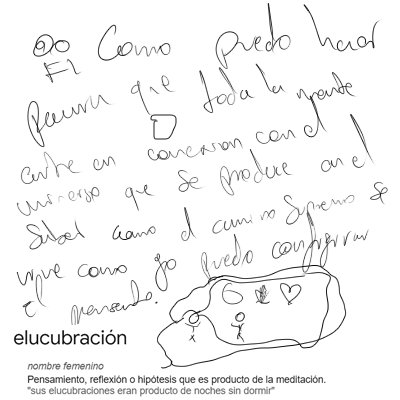 Como puedo hacer
El
que toda la mente
entre en conexion con el
universo que se produce en el
Saber como el camino Supremo se
como yo puedo configurar
el pensando.
elucubración
nombre femenino
Pensamiento, reflexión o hipótesis que es producto de la meditación.
"sus elucubraciones eran producto de noches sin dormir"